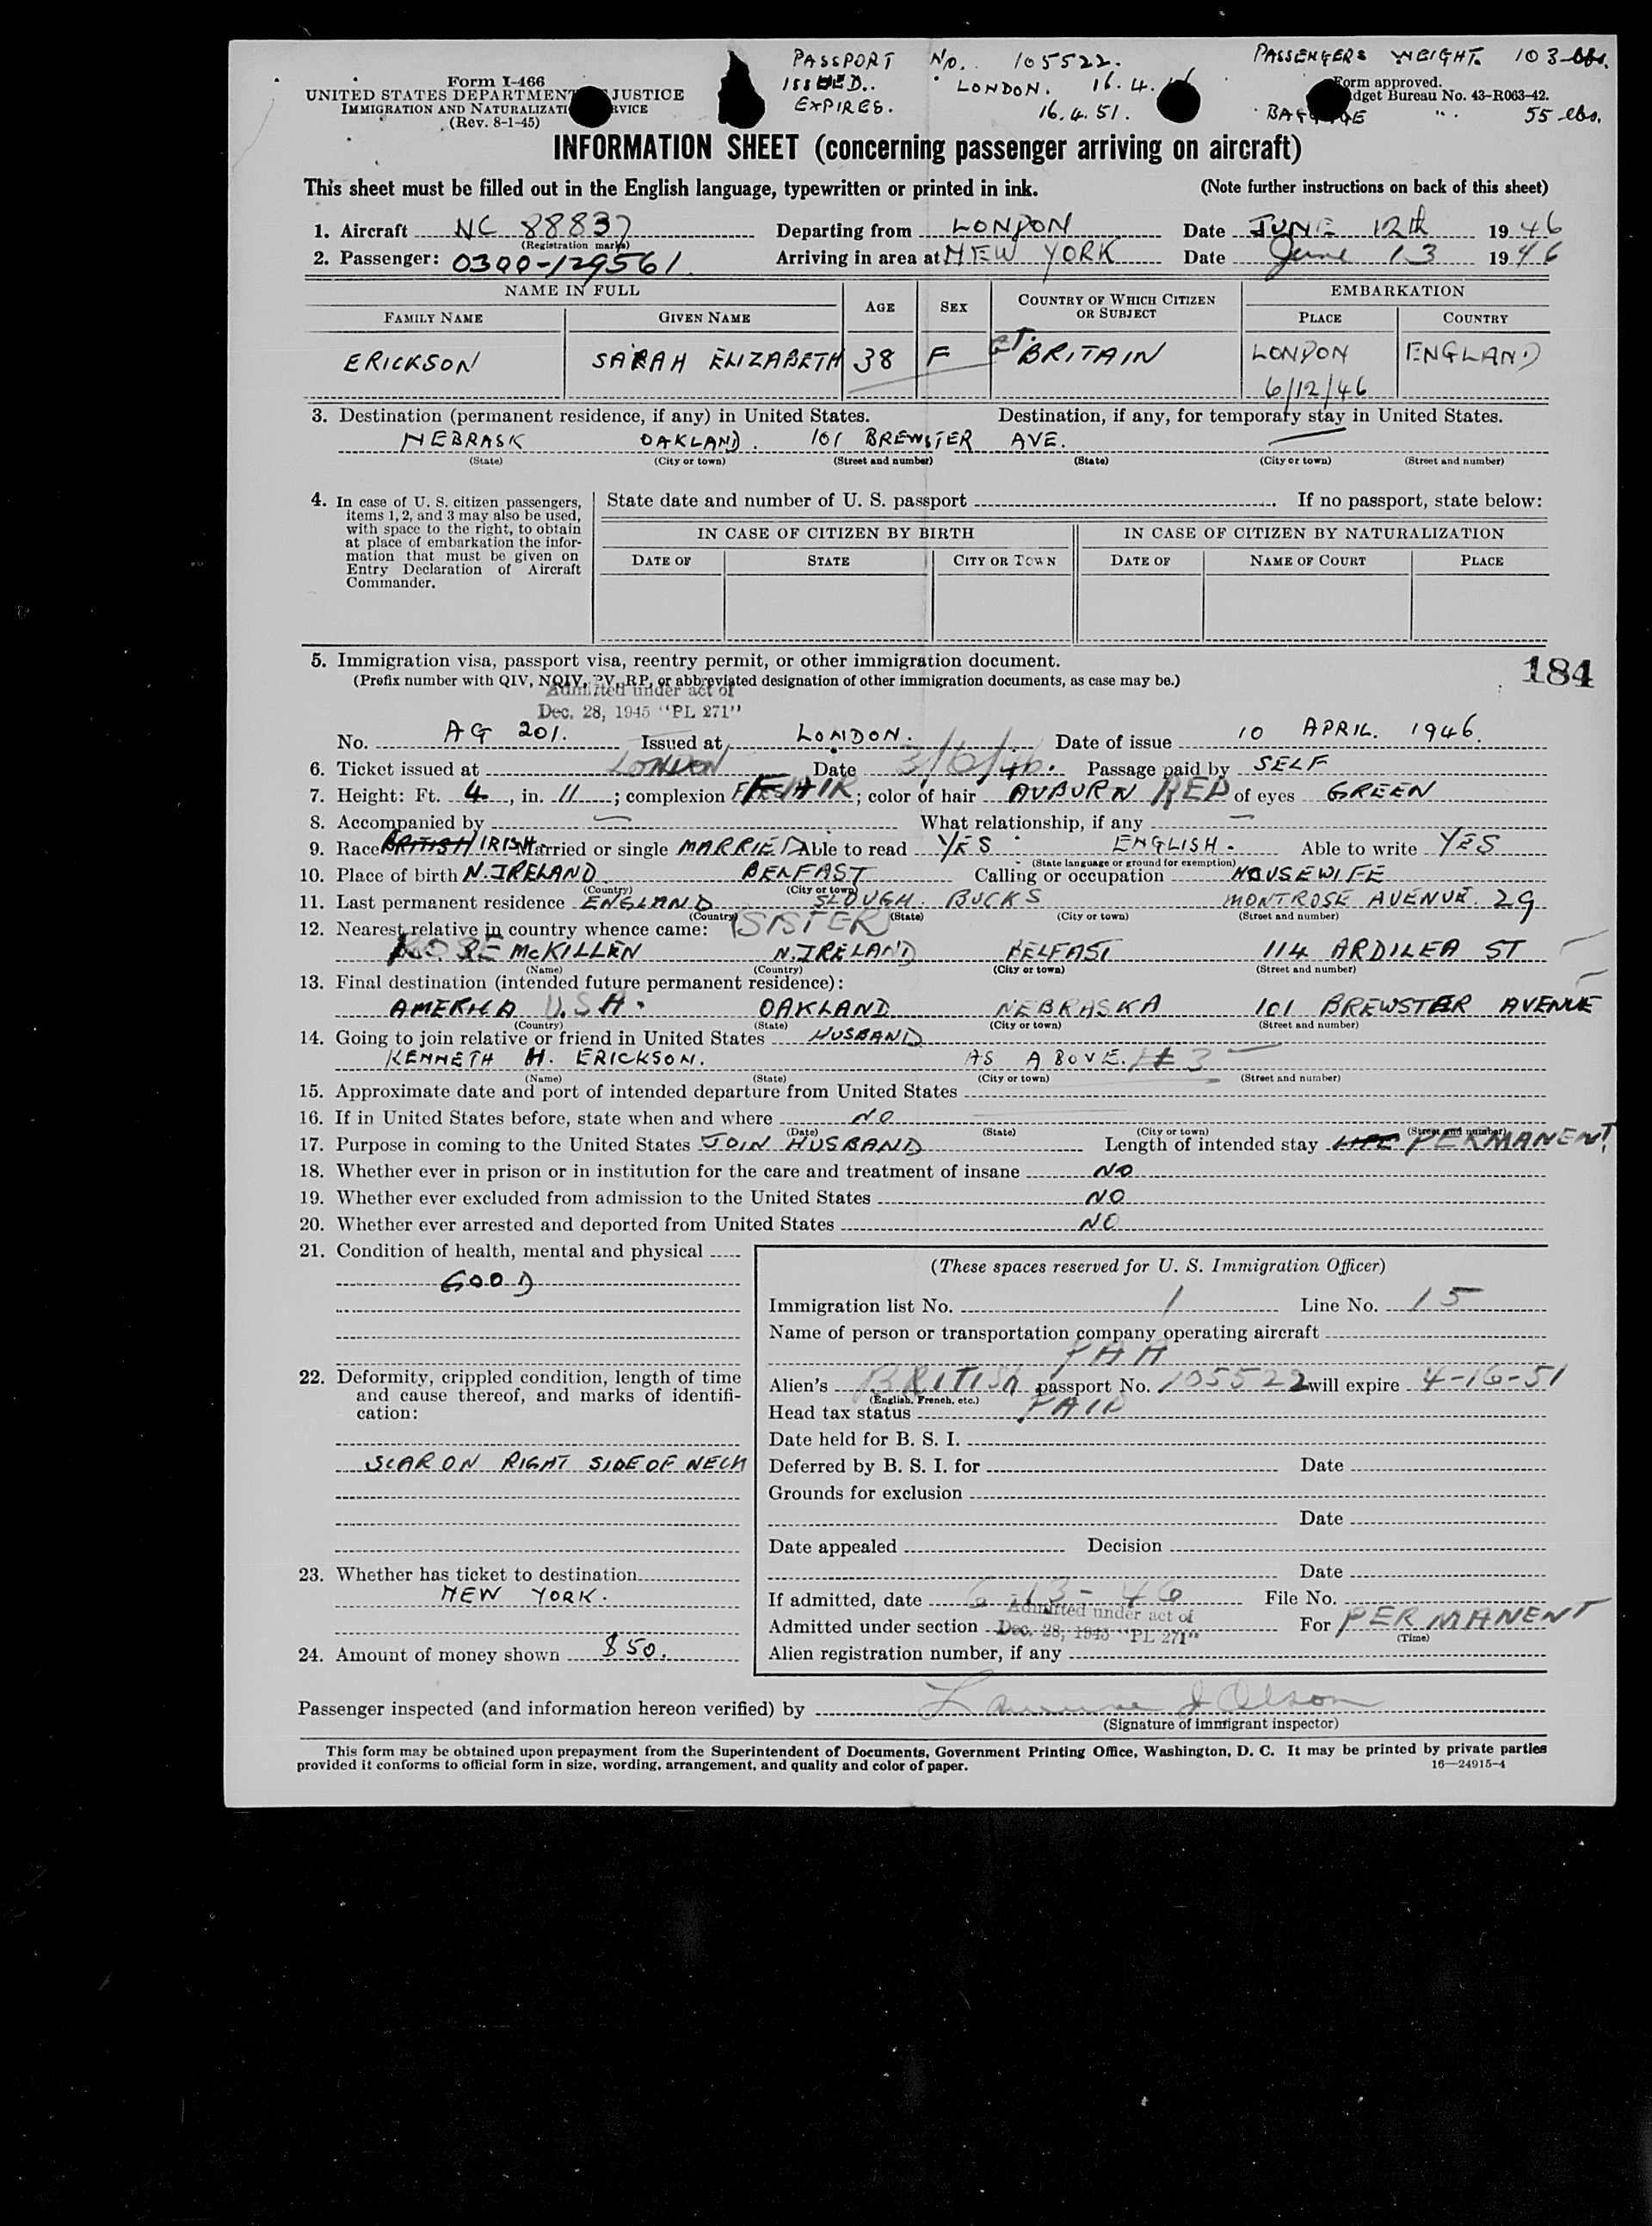 PASSPORT No. 105522. PASSENGERS WEIGHT. 103 lbs.
ISSUED.. LONDON. 16.4.
EXPIRES. 16.4.51. BAGGAGE " . 55 lbs.
Form I-466
UNITED STATES DEPARTMENT JUSTICE
IMMIGRATION AND NATURALIZATI RVICE
(Rev. 8-1-45)
orm approved.
dget Bureau No. 43-R063-42.
INFORMATION SHEET (concerning passenger arriving on aircraft)
This sheet must be filled out in the English language, typewritten or printed in ink. (Note further instructions on back of this sheet)
1. Aircraft NC 88837 Departing from LONDON Date JUNE 12th 1946
(Registration marks)
2. Passenger: 0300-129561 Arriving in area at NEW YORK Date June 13 1946
NAME IN FULL AGE SEX COUNTRY OF WHICH CITIZEN OR SUBJECT EMBARKATION
FAMILY NAME GIVEN NAME PLACE COUNTRY
ERICKSON SARAH ELIZABETH 38 F GT. BRITAIN LONDON ENGLAND
6/12/46
3. Destination (permanent residence, if any) in United States. Destination, if any, for temporary stay in United States.
NEBRASK OAKLAND. 101 BREWSTER AVE.
(State) (City or town) (Street and number) (State) (City or town) (Street and number)
4. In case of U. S. citizen passengers, items 1, 2, and 3 may also be used, with space to the right, to obtain at place of embarkation the information that must be given on Entry Declaration of Aircraft Commander.
State date and number of U. S. passport . If no passport, state below:
IN CASE OF CITIZEN BY BIRTH IN CASE OF CITIZEN BY NATURALIZATION
DATE OF STATE CITY OR TOWN DATE OF NAME OF COURT PLACE
5. Immigration visa, passport visa, reentry permit, or other immigration document.
184
(Prefix number with QIV, NQIV, PV, RP, or abbreviated designation of other immigration documents, as case may be.)
Admitted under act of
Dec. 28, 1945 "PL 271"
No. AG 201. Issued at LONDON. Date of issue 10 APRIL. 1946.
6. Ticket issued at LONDON Date 3/6/46. Passage paid by SELF
7. Height: Ft. 4, in. 11; complexion FAIR; color of hair AUBURN RED of eyes GREEN
8. Accompanied by — What relationship, if any —
9. Race BRITISH IRISH. Married or single MARRIED Able to read YES ENGLISH. Able to write YES
(State language or ground for exemption)
10. Place of birth N. IRELAND BELFAST Calling or occupation HOUSEWIFE
(Country) (City or town)
11. Last permanent residence ENGLAND SLOUGH. BUCKS MONTROSE AVENUE. 29
(Country) (State) (City or town) (Street and number)
12. Nearest relative in country whence came: (SISTER)
ROSE McKILLEN N. IRELAND BELFAST 114 ARDILEA ST
(Name) (Country) (City or town) (Street and number)
13. Final destination (intended future permanent residence):
AMERICA U.S.A. OAKLAND NEBRASKA 101 BREWSTER AVENUE
(Country) (State) (City or town) (Street and number)
14. Going to join relative or friend in United States HUSBAND
KENNETH H. ERICKSON. AS ABOVE. # 3
(Name) (State) (City or town) (Street and number)
15. Approximate date and port of intended departure from United States
16. If in United States before, state when and where NO
(Date) (State) (City or town) (Street and number)
17. Purpose in coming to the United States JOIN HUSBAND Length of intended stay LIFE PERMANENT
18. Whether ever in prison or in institution for the care and treatment of insane NO
19. Whether ever excluded from admission to the United States NO
20. Whether ever arrested and deported from United States NO
21. Condition of health, mental and physical
GOOD
22. Deformity, crippled condition, length of time and cause thereof, and marks of identification:
SCAR ON RIGHT SIDE OF NECK
23. Whether has ticket to destination
NEW YORK.
24. Amount of money shown $50.
(These spaces reserved for U. S. Immigration Officer)
Immigration list No. 1 Line No. 15
Name of person or transportation company operating aircraft
PAA
Alien's BRITISH passport No. 105522 will expire 4-16-51
(English, French, etc.)
Head tax status PAID
Date held for B. S. I.
Deferred by B. S. I. for Date
Grounds for exclusion
Date
Date appealed Decision
Date
If admitted, date 6-13-46 File No.
Admitted under act of
Admitted under section Dec. 28, 1945 "PL 271" For PERMANENT
(Time)
Alien registration number, if any
Passenger inspected (and information hereon verified) by Laurence J Olson
(Signature of immigrant inspector)
This form may be obtained upon prepayment from the Superintendent of Documents, Government Printing Office, Washington, D. C. It may be printed by private parties
provided it conforms to official form in size, wording, arrangement, and quality and color of paper. 16—24915-4